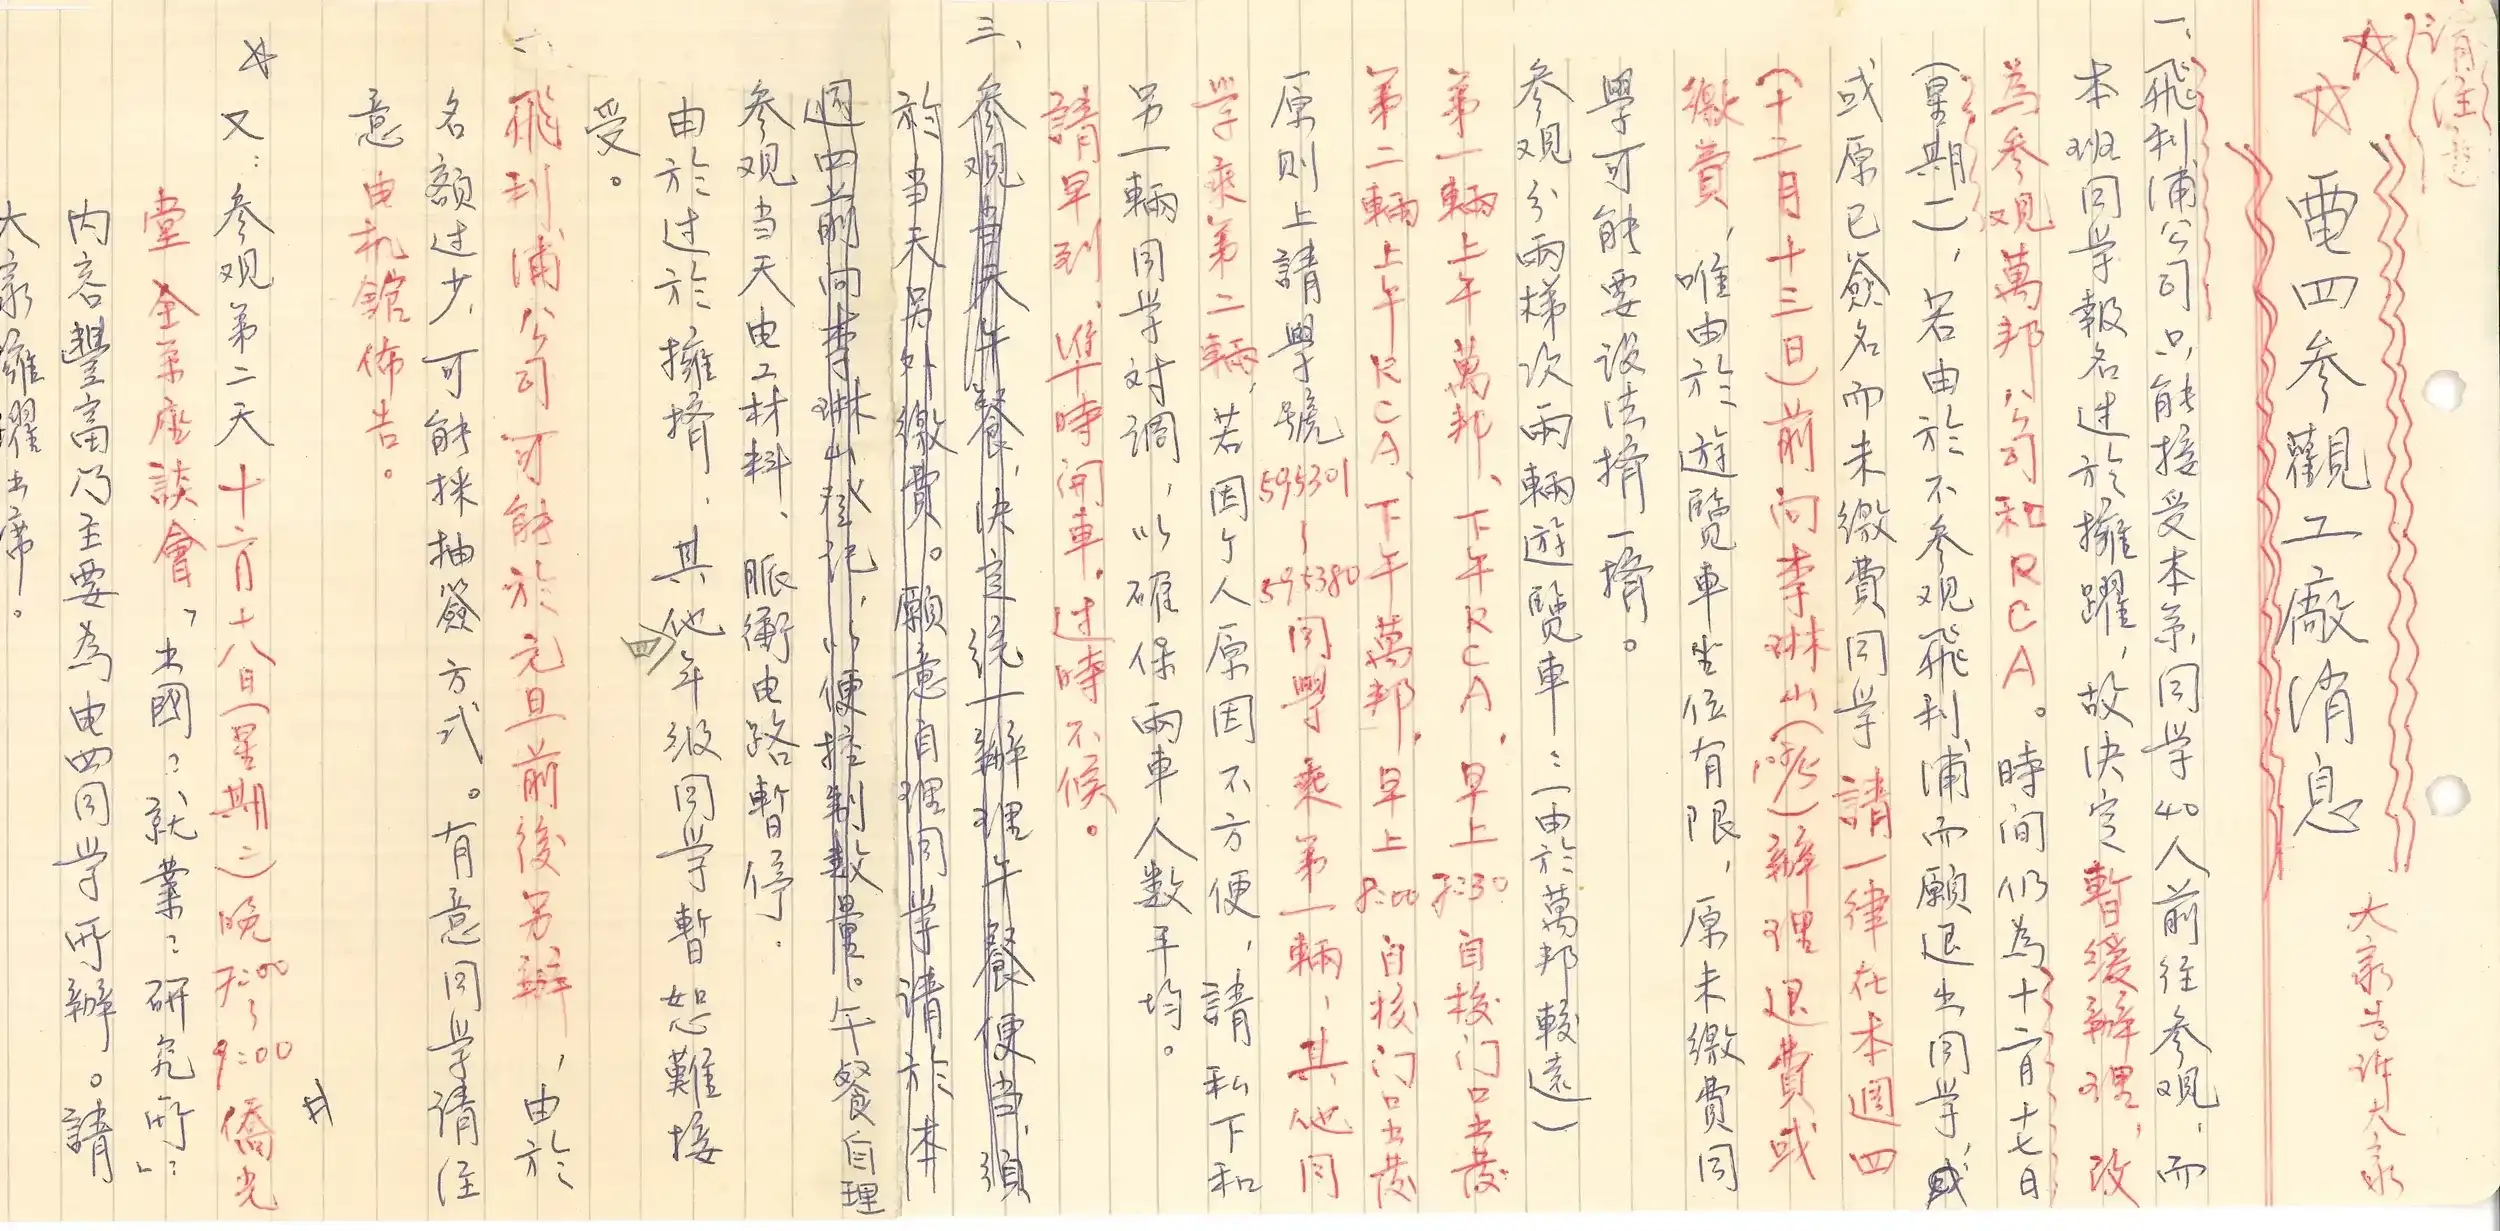 請注意
電四參觀工廠消息
大家告诉大家
一、飛利浦公司只能接受本系同学40人前往参观，而
本班同学報名过於擁躍，故決定暫缓辦理，改
為参观萬邦公司和RCA。時间仍為十二月十七日
(星期二)，若由於不参观飛利浦而願退出同学，或
或原已簽名而未繳費同学請一律在本週四
(十二月十三日)前向李琳山(嘐)辦理退費或
繳費，唯由於遊覽車坐位有限，原未繳費同
學可能要设法擠一擠。
参观分兩梯次兩輛遊覽車：(由於萬邦較遠)
第一輛上午萬邦、下午RCA，早上7:30自校门口出發
第二輛上午RCA、下午萬邦，早上8:00自校门口出發
原则上請學號595301～595380同學乘第一輛，其他同
学乘第二輛，若因个人原因不方便，請私下和
另一輛同学对调，以確保兩車人数平均。
請早到，準時開車，过時不候。
三、参观当天午餐，決定統一辦理午餐便当，須
於当天另外繳費。願意自理同学请於本
週四前向李琳山登记，以便控制数量。午餐自理
参观当天电工材料、脈衝电路暫停。
由於过於擁擠，其他年级同学暫恕難接
受。
四
一、飛利浦公司可能於元旦前後另辦，由於
名额过少，可能採抽簽方式。有意同学请注
意电机館佈告。
又：参观第二天十二月十八日(星期二)晚7:00～9:00僑光
堂全系座談會，「出國：就業：研究所：」
内容豐富乃主要為电四同学所辦。請
大家擁躍出席。